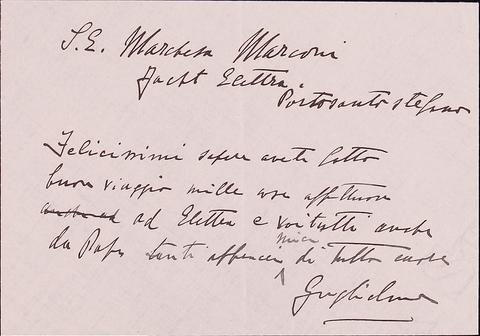 S.E. Marchesa Marconi
Yacht Elettra.
Portosanto stefano
Felicissimi sapere avete fatto
buon viaggio mille cose affettuose
ad Elettra e voi tutti anche
da Papa tanti
miei
di tutto cuore
Guglielmo